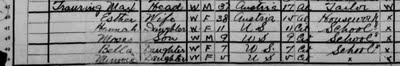 Trauring Max Head M W 37 Austria 17 Al Tailor W
Esther Wife W F 38 Austria 15 Al Housework X
Hannah Daughter W F 11 U S 11 Cit School X
Moses Son W M 9 U S 9 Cit School X
Bella Daughter W F 7 U S 7 Cit School X
Minnie Daughter W F U S Cit X X